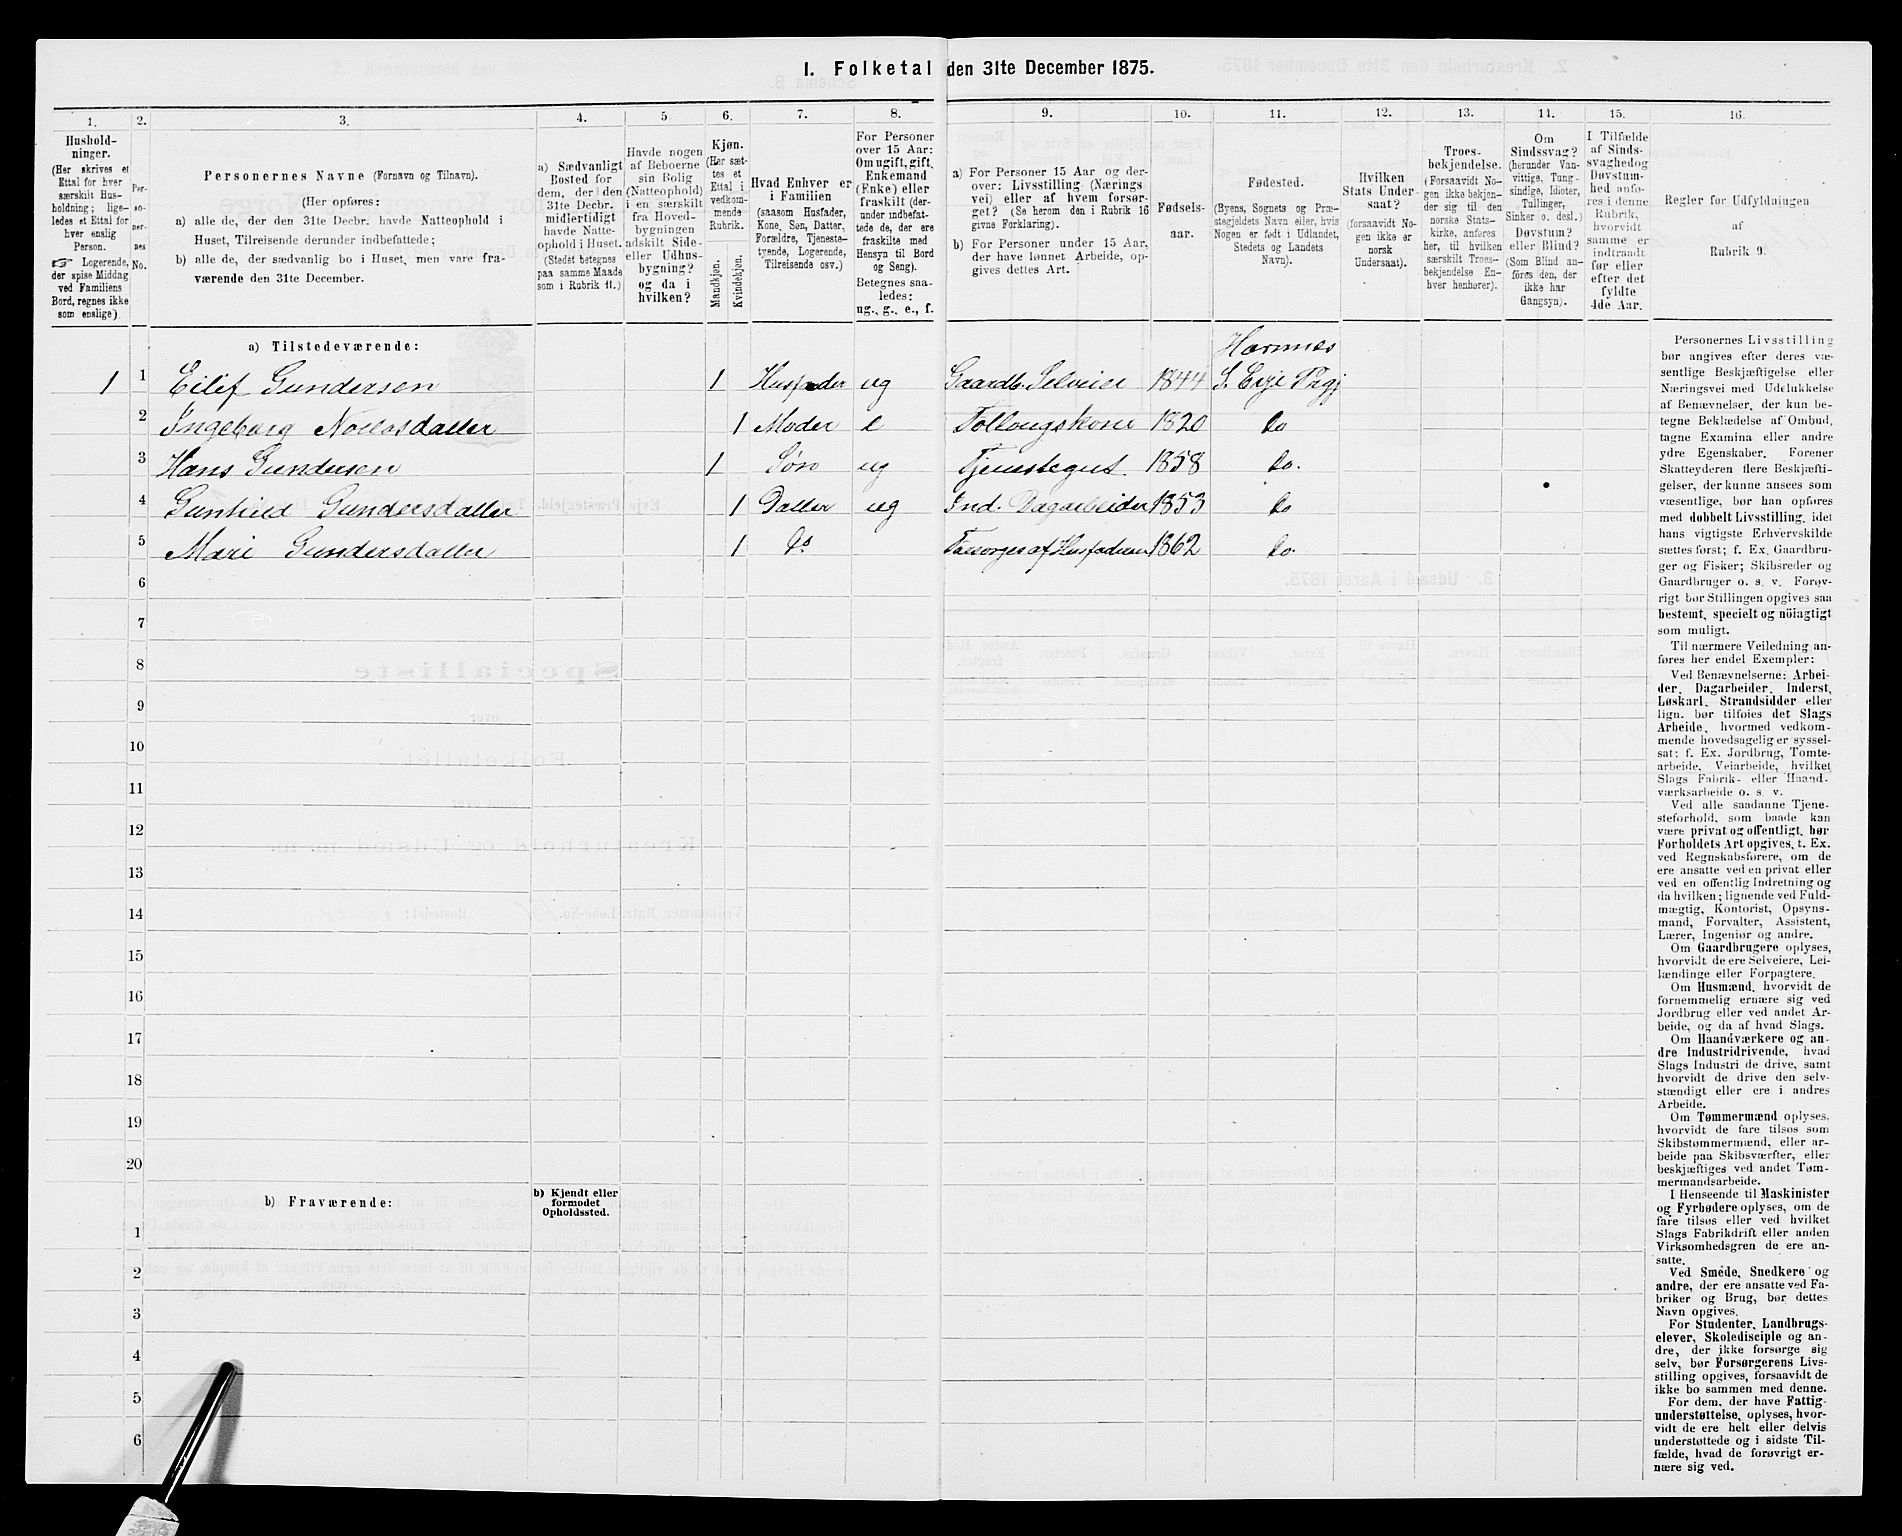 1. Folketal den 31te December 1875.
1. 2. 3. 4. 5. 6. 7. 8. 9. 10. 11. 12. 13. 14. 15. 16.
Hushold-
ninger.
(Her skrives et
Ettal for hver
særskilt Hus-
holdning; lige-
ledes et Ettal for
hver enslig
Person.
☞ Logerende,
der spise Middag
ved Familiens
Bord, regnes ikke
som enslige)
Per-
so-
ner-
nes
No.
Personernes Navne (Fornavn og Tilnavn).
(Her opføres:
a) alle de, der den 31te Decbr. havde Natteophold i
Huset, Tilreisende derunder indbefattede;
b) alle de, der sædvanlig bo i Huset, men vare fra-
værende den 31te December.
a) Sædvanligt
Bosted for
dem, der den
31te Decbr.
midlertidigt
havde Natte-
ophold i Huset.
(Stedet betegnes
paa samme Maade
som i Rubrik 11.)
Havde nogen
af Beboerne
sin Bolig
(Natteophold)
i en særskilt
fra Hoved-
bygningen
adskilt Side-
eller Udhus-
bygning?
og da i
hvilken?
Kjøn.
(Her sæt-
tes et
Ettal i
vedkom-
mende
Rubrik.
Mandkjøn.
Kvindekjøn.
Hvad Enhver er
i Familien
(saasom Husfader,
Kone, Søn, Datter,
Forældre, Tjeneste-
tyende, Logerende,
Tilreisende osv.)
For Personer
over 15 Aar:
Om ugift, gift,
Enkemand
(Enke) eller
fraskilt (der-
under indbefat-
tede de, der ere
fraskilte med
Hensyn til Bord
og Seng).
Betegnes saa-
ledes:
ug., g., e., f.
a) For Personer 15 Aar og der-
over: Livsstilling (Nærings
vei) eller af hvem forsør-
get? (Se herom den i Rubrik 16
givne Forklaring).
b) For Personer under 15 Aar,
der have lønnet Arbeide, op-
gives dettes Art.
Fødsels-
aar.
Fødested.
(Byens, Sognets og Præ-
stegjeldets Navn eller, hvis
Nogen er født i Udlandet,
Stedets og Landets
Navn).
Hvilken
Stats Under-
saat?
(forsaavidt No-
gen ikke er
norsk
Undersaat).
Troes-
bekjendelse.
(Forsaavidt No-
gen ikke bekjen-
der sig til den
norske Stats-
kirke, anføres
her, til hvilken
særskilt Troes-
bekjendelse En-
hver henhører).
Om
Sindssvag?
(herunder Van-
vittige, Tung-
sindige, Idioter,
Tullinger,
Sinker o. desl.)
Døvstum?
eller Blind?
(Som Blind an-
føres den, der
ikke har
Gangsyn).
I Tilfælde
af Sinds-
svaghed og
Døvstum-
hed anfø-
res i denne
Rubrik,
hvorvidt
samme er
indtraadt
før eller
efter det
fyldte
4de Aar.
Regler for Udfyldningen
af
Rubrik 9.
a) Tilstedeværende:
Hornnes
1 1 Eilef Gundersen 1 Husfader ug Gaardb. Selveier 1844 S. Evje Prgj
2 Ingeborg 1 Moder e 1820 Do
3 Hans Gundersen 1 Søn ug Tjenestegut 1858 Do.
4 Gunhild Gundersdatter 1 Datter ug Ind. Dagarbeider 1853 Do
5 Mari Gundersdatter 1 Do. Forsørges af Husfaderen 1862 Do.
6
7
8
9
10
11
12
13
14
15
16
17
18
19
20
b) Fraværende:
b) Kjendt eller
formodet
Opholdssted.
1
2
3
4
5
6
Personernes Livsstilling
bør angives efter deres væ-
sentlige Beskjæftigelse eller
Næringsvei med Udelukkelse
af Benævnelser, der kun be-
tegne Beklædelse af Ombud,
tagne Examina eller andre
ydre Egenskaber. Forener
Skatteyderen flere Beskjæfti-
gelser, der kunne ansees som
væsentlige, bør han opføres
med dobbelt Livsstilling, idet
hans vigtigste Erhvervskilde
sættes først; f. Ex. Gaardbru-
ger og Fisker; Skibsreder og
Gaardbruger o. s. v. Forøv-
rigt bør Stillingen opgives saa
bestemt, specielt og nöiagtigt
som muligt.
Til nærmere Veiledning an-
føres her endel Exempler:
Ved Benævnelserne: Arbei-
der, Dagarbeider, Inderst,
Løskarl, Strandsidder eller
lign. bør tilføies det Slags
Arbeide, hvormed vedkom-
mende hovedsagelig er syssel-
sat; f. Ex. Jordbrug, Tomte-
arbeide, Veiarbeide, hvilket
Slags Fabrik- eller Haand-
værksarbeide o. s. v.
Ved alle saadanne Tjene-
steforhold, som baade kan
være privat og offentligt, bør
Forholdets Art opgives, t. Ex.
ved Regnskabsførere, om de
ere ansatte ved en privat eller
ved en offentlig Indretning og
da hvilken; lignende ved Fuld-
mægtig, Kontorist, Opsyns-
mand, Forvalter, Assistent,
Lærer, Ingeniør og andre.
Om Gaardbrugere oplyses,
hvorvidt de ere Selveiere, Lei-
lændinge eller Forpagtere.
Om Husmænd, hvorvidt de
fornemmelig ernære sig ved
Jordbrug eller ved andet Ar-
beide, og da af hvad Slags.
Om Haandværkere og an-
dre Industridrivende, hvad
Slags Industri de drive, samt
hvorvidt de drive den selv-
stændigt eller ere i andres
Arbeide.
Om Tømmermænd oplyses,
hvorvidt de fare tilsøs som
Skibstømmermænd, eller ar-
beide paa Skibsværfter, eller
beskjæftiges ved andet Tøm-
mermandsarbeide.
I Henseende til Maskinister
og Fyrbødere oplyses, om de
fare tilsøs eller ved hvilket
Slags Fabrikdrift eller anden
Virksomhedsgren de ere an-
satte.
Ved Smede, Snedkere og
andre, der ere ansatte ved Fa-
briker og Brug, bør dettes
Navn opgives.
For Studenter, Landbrugs-
elever, Skoledisciple og an-
dre, der ikke forsørge sig
selv, bør Forsørgerens Livs-
stilling opgives, forsaavidt de
ikke bo sammen med denne.
For dem, der have Fattig-
understøttelse, oplyses, hvor-
vidt de ere helt eller delvis
understøttede og i sidste Til-
fælde, hvad de forøvrigt er-
nære sig ved.